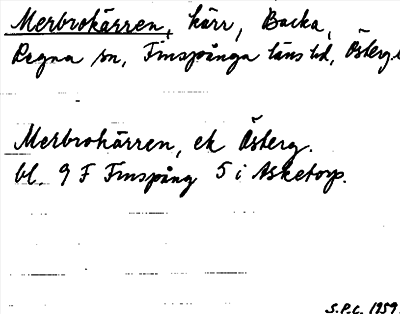 Merbrokärren, kärr, Backa,
Regna sn, Finspånga läns hd, Österg.
Merbrokärren, ek Österg.
bl. 9 F Finspång 5 i Asketorp.
S.P.C. 1959.